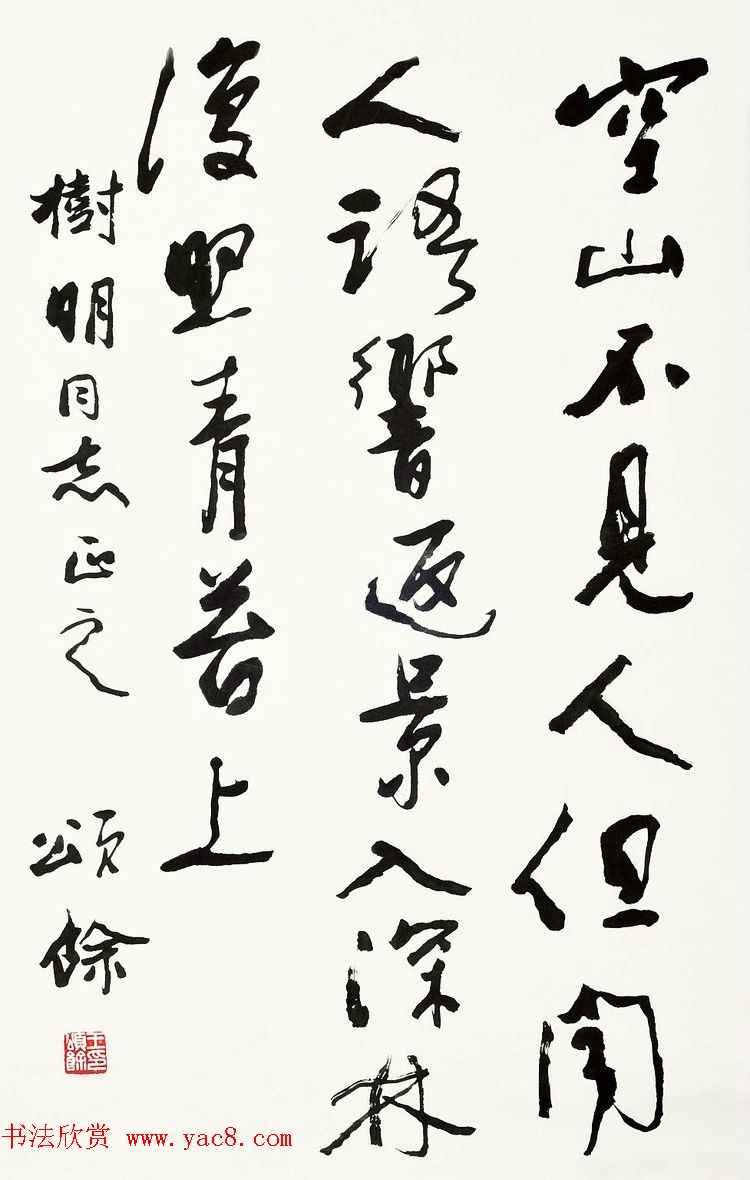 空山不見人但聞
人語響返景入深林
復照青苔上
樹明同志正之
頌餘
王頌餘印
书法欣赏 www.yac8.com